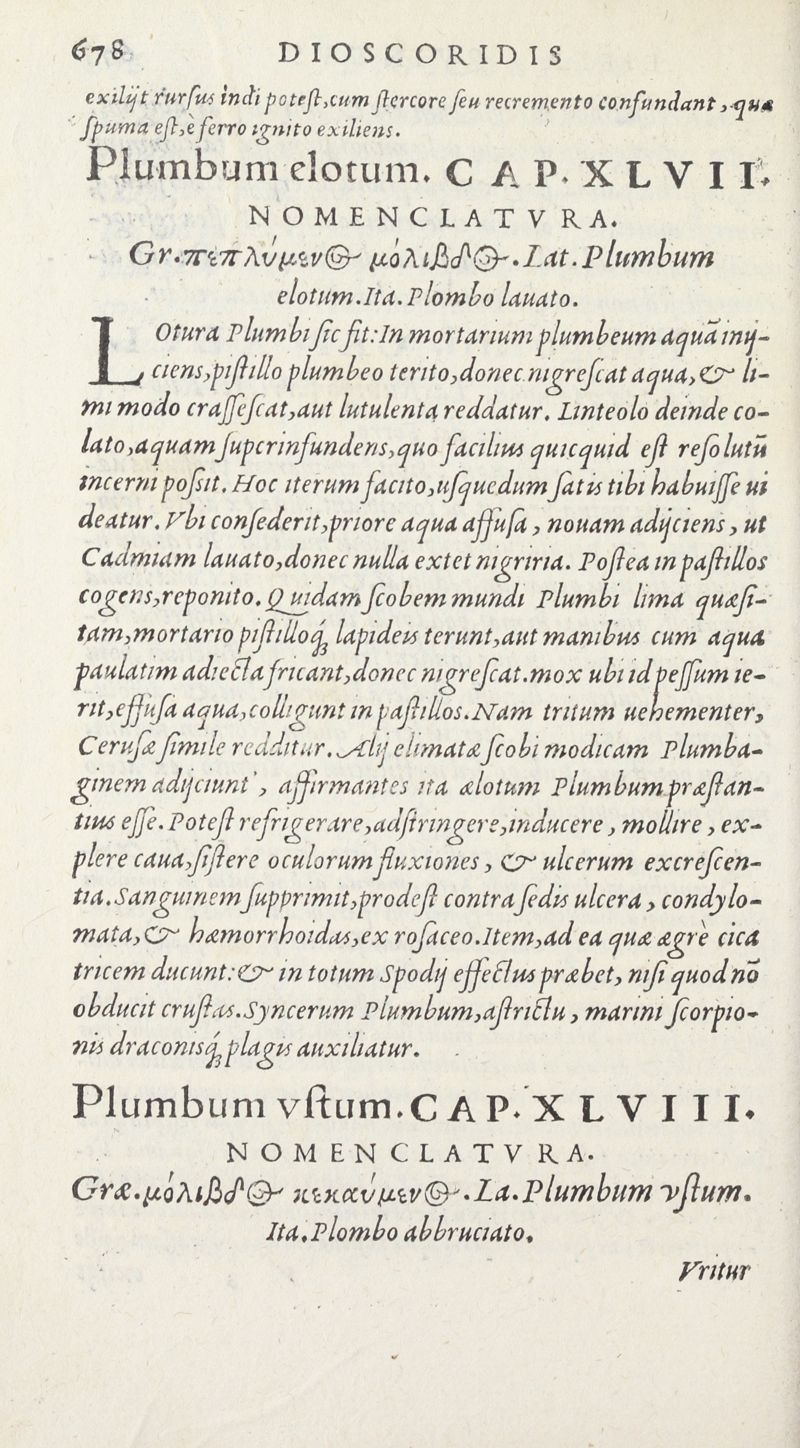 678 DIOSCORIDIS
exilijt rursus indi potest, cum stercore seu recremento confundant, quæ
spuma est, è ferro ignito exiliens.
Plumbum elotum. CAP. XLVII.
NOMENCLATVRA.
Gr. πεπλύμενος μόλιβδος. Lat. Plumbum
elotum. Ita. Plombo lauato.
LOtura Plumbi sic fit: In mortarium plumbeum aquã inij-
ciens, pistillo plumbeo terito, donec nigrescat aqua, & li-
mi modo crassescat, aut lutulenta reddatur. Linteolo deinde co-
lato, aquam superinfundens, quo facilius quicquid est resolutũ
incerni possit. Hoc iterum facito, usquedum satis tibi habuisse ui
deatur. Vbi consederit, priore aqua affusa, nouam adijciens, ut
Cadmiam lauato, donec nulla extet nigriria. Postea in pastillos
cogens, reponito. Quidam scobem mundi Plumbi lima quæsi-
tam, mortario pistilloq; lapideis terunt, aut manibus cum aqua
paulatim adiecta fricant, donec nigrescat. mox ubi id pessum ie-
rit, effusa aqua, colligunt in pastillos. Nam tritum uehementer,
Cerusæ simile redditur. Alij elimatæ scobi modicam Plumba-
ginem adijciunt, affirmantes ita ælotum Plumbum præstan-
tius esse. Potest refrigerare, adstringere, inducere, mollire, ex-
plere caua, sistere oculorum fluxiones, & ulcerum excrescen-
tia. Sanguinem supprimit, prodest contra sedis ulcera, condylo-
mata, & hæmorrhoidas, ex rosaceo. Item, ad ea quæ ægrè cica
tricem ducunt: & in totum Spodij effectus præbet, nisi quod nõ
obducit crustas. Syncerum Plumbum, astrictu, marini scorpio-
nis draconisq; plagis auxiliatur.
Plumbum vstum. CAP. XLVIII.
NOMENCLATVRA.
Græ. μόλιβδος κεκαύμενος. La. Plumbum vstum.
Ita. Plombo abbruciato.
Vritur